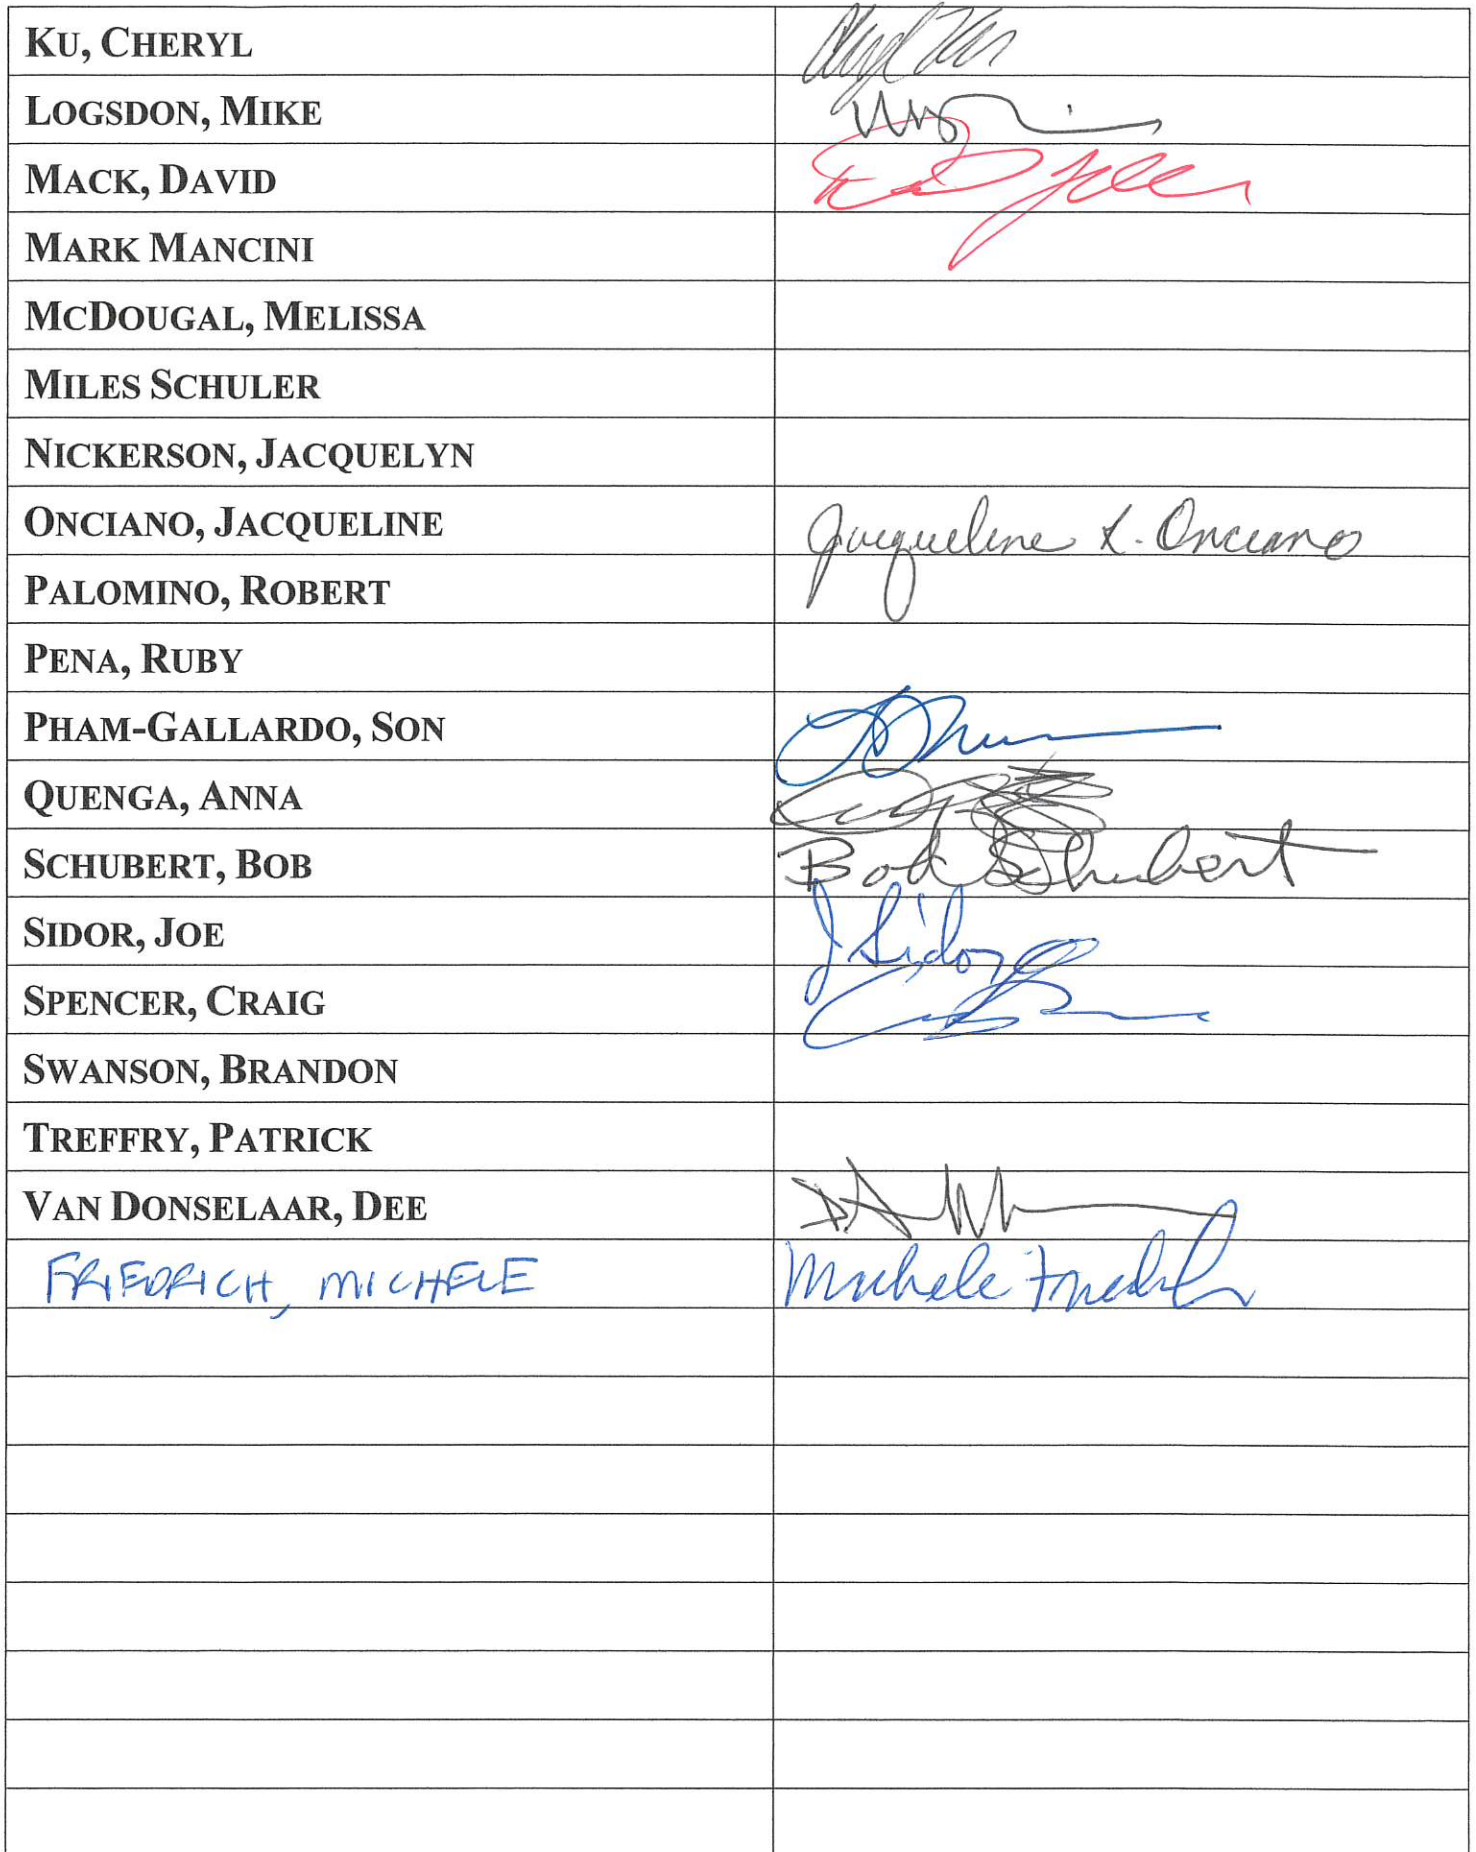 KU, CHERYL
LOGSDON, MIKE
MACK, DAVID
MARK MANCINI
MCDOUGAL, MELISSA
MILES SCHULER
NICKERSON, JACQUELYN
ONCIANO, JACQUELINE Jacqueline L. Onciano
PALOMINO, ROBERT
PENA, RUBY
PHAM-GALLARDO, SON
QUENGA, ANNA
SCHUBERT, BOB Bob Schubert
SIDOR, JOE J Sidor
SPENCER, CRAIG
SWANSON, BRANDON
TREFFRY, PATRICK
VAN DONSELAAR, DEE
FRIEDRICH, MICHELE Michele Friedrich